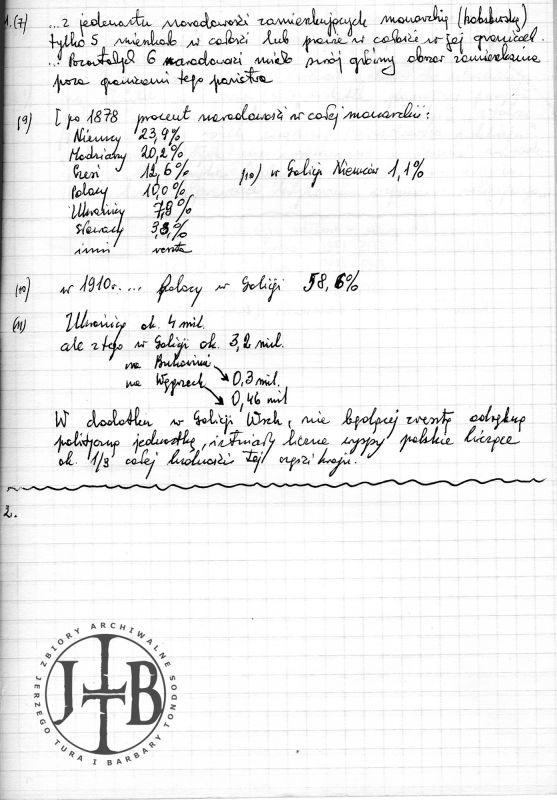 1. (7) ... z jedenastu narodowości zamieszkujących monarchię (habsburską)
tylko 5 mieszkało w całości lub prawie w całości w jej granicach.
... Pozostałych 6 narodowości miało swój główny obszar zamieszkania
poza granicami tego państwa
(9) [ po 1878 procent narodowości w całej monarchii:
Niemcy 23,9%
Madziarzy 20,2%
Czesi 12,6% (10) w Galicji Niemców 1,1%
Polacy 10,0%
Ukraińcy 7,9%
Słowacy 3,8%
inni reszta
(10) w 1910r. ... Polacy w Galicji 58,6%
(11) Ukraińcy ok. 4 mil.
ale z tego w Galicji ok. 3,2 mil.
na Bukowinie
na Węgrzech 0,3 mil.
0,46 mil
W dodatku w Galicji Wsch., nie będącej zresztą odrębną
polityczną jednostką, istniały liczne wyspy polskie liczące
ok. 1/3 całej ludności tej części kraju.
2.
ZBIORY ARCHIWALNE
JERZEGO TURA I BARBARY TONDOS
JTB